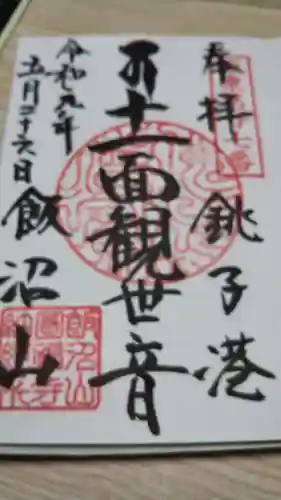 奉拝　銚子港
十一面観世音
飯沼山
令和元年
五月二十六日